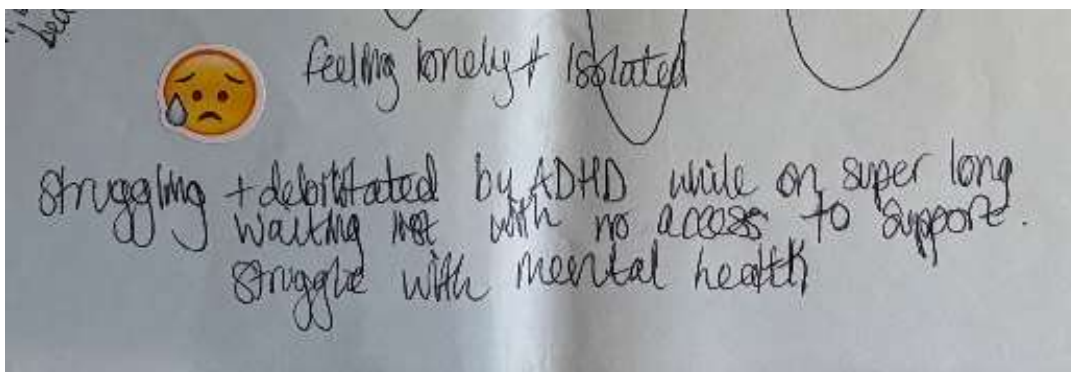 feeling lonely + isolated
struggling + debilitated by ADHD while on super long
waiting list with no access to support.
struggle with mental health